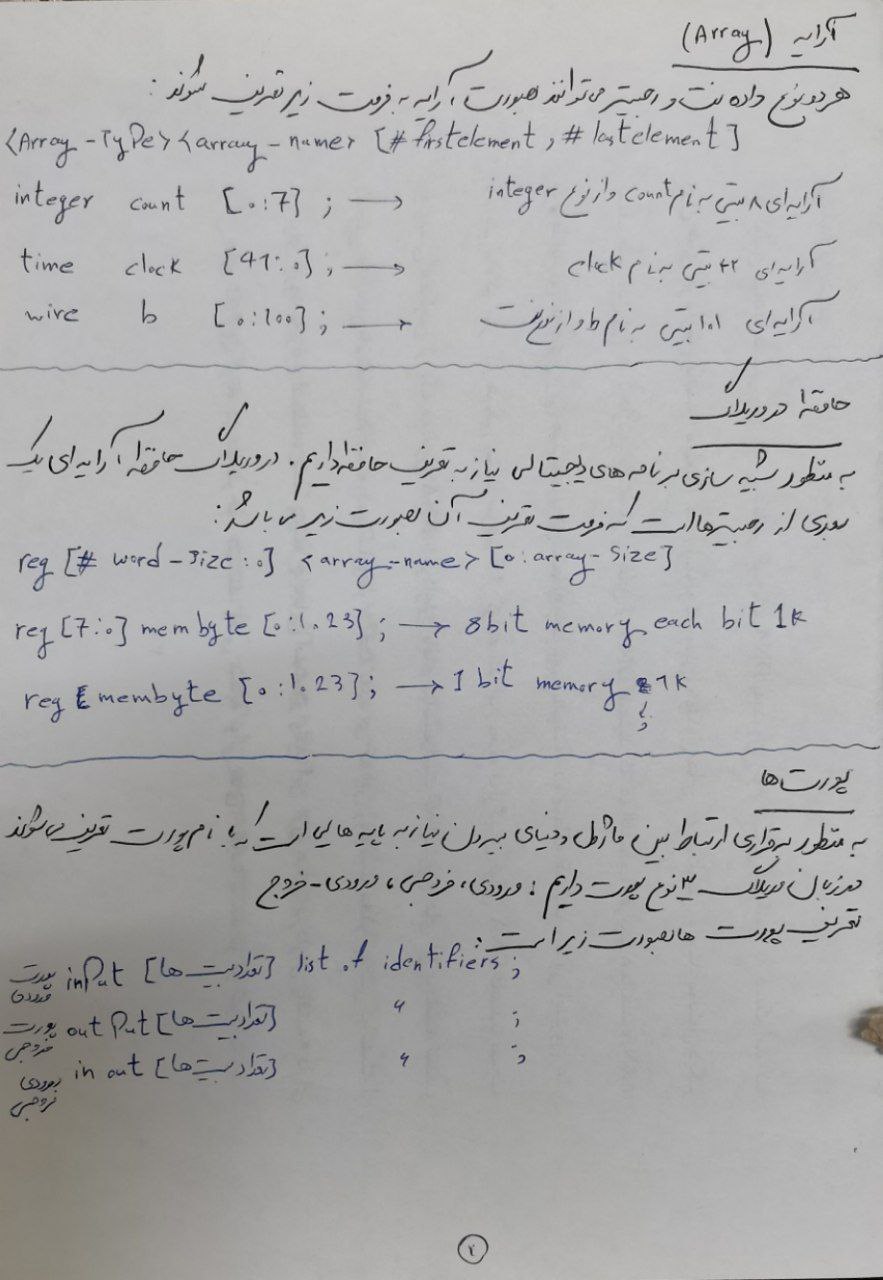 آرایه (Array)
هر دو نوع داده نت و رجیستر می توانند بصورت آرایه به فرمت زیر تعریف شوند :
<Array-Type> <array-name> [# firstelement , # lastelement]
integer count [0:7] ; → آرایه ای ۸ بیتی به نام count و از نوع integer
time clock [41:0] ; → آرایه ای ۴۲ بیتی به نام clock
wire b [0:100] ; → آرایه ای ۱۰۱ بیتی به نام b و از نوع نت
حافظه در وریلاگ
به منظور شبیه سازی برنامه های دیجیتالی نیاز به تعریف حافظه داریم . در وریلاگ حافظه آرایه ای یک
بعدی از رجیسترها است که فرمت تعریف آن بصورت زیر می باشد :
reg [# word-size:0] <array-name> [0:array-size]
reg [7:0] membyte [0:1023] ; → 8bit memory each bit 1k
reg membyte [0:1023] ; → 1 bit memory 1k
پورت ها
به منظور برقراری ارتباط بین ماژول و دنیای بیرون نیاز به پایه هایی است که با نام پورت تعریف می شوند
در زبان وریلاگ ۳ نوع پورت داریم : ورودی ، خروجی ، ورودی - خروجی
تعریف پورت ها بصورت زیر است :
پورت ورودی input [تعداد بیت ها] list of identifiers ;
پورت خروجی out put [تعداد بیت ها] " ;
ورودی خروجی in out [تعداد بیت ها] " ;
۲